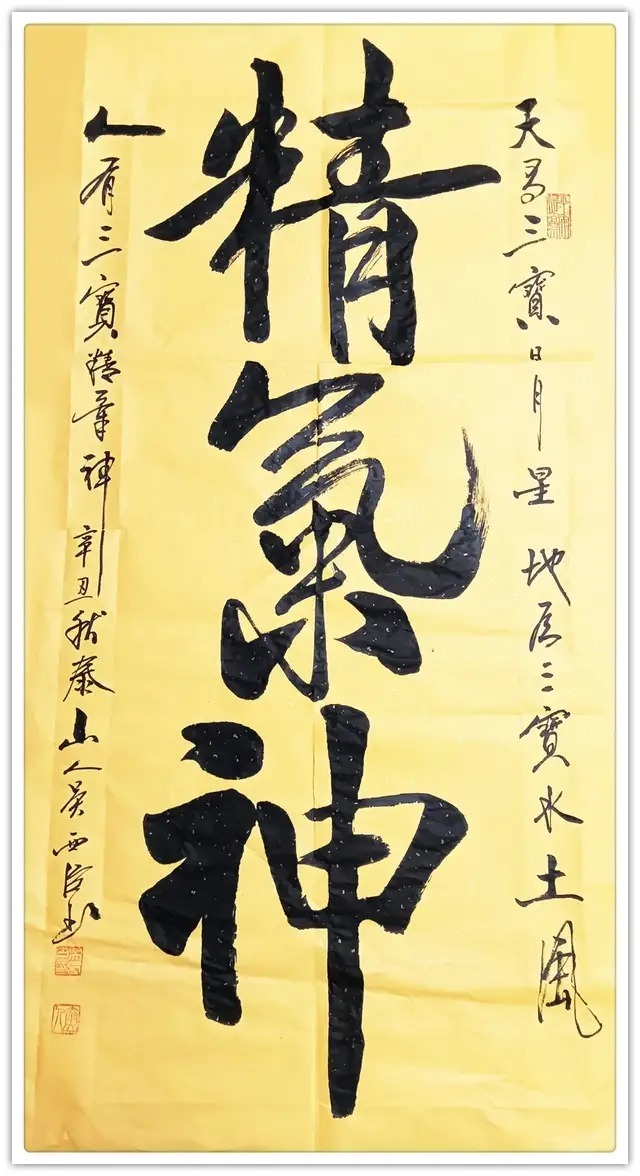 天有三寶日月星地有三寶水土風
精氣神
人有三寶精氣神辛丑秋泰山人吴西